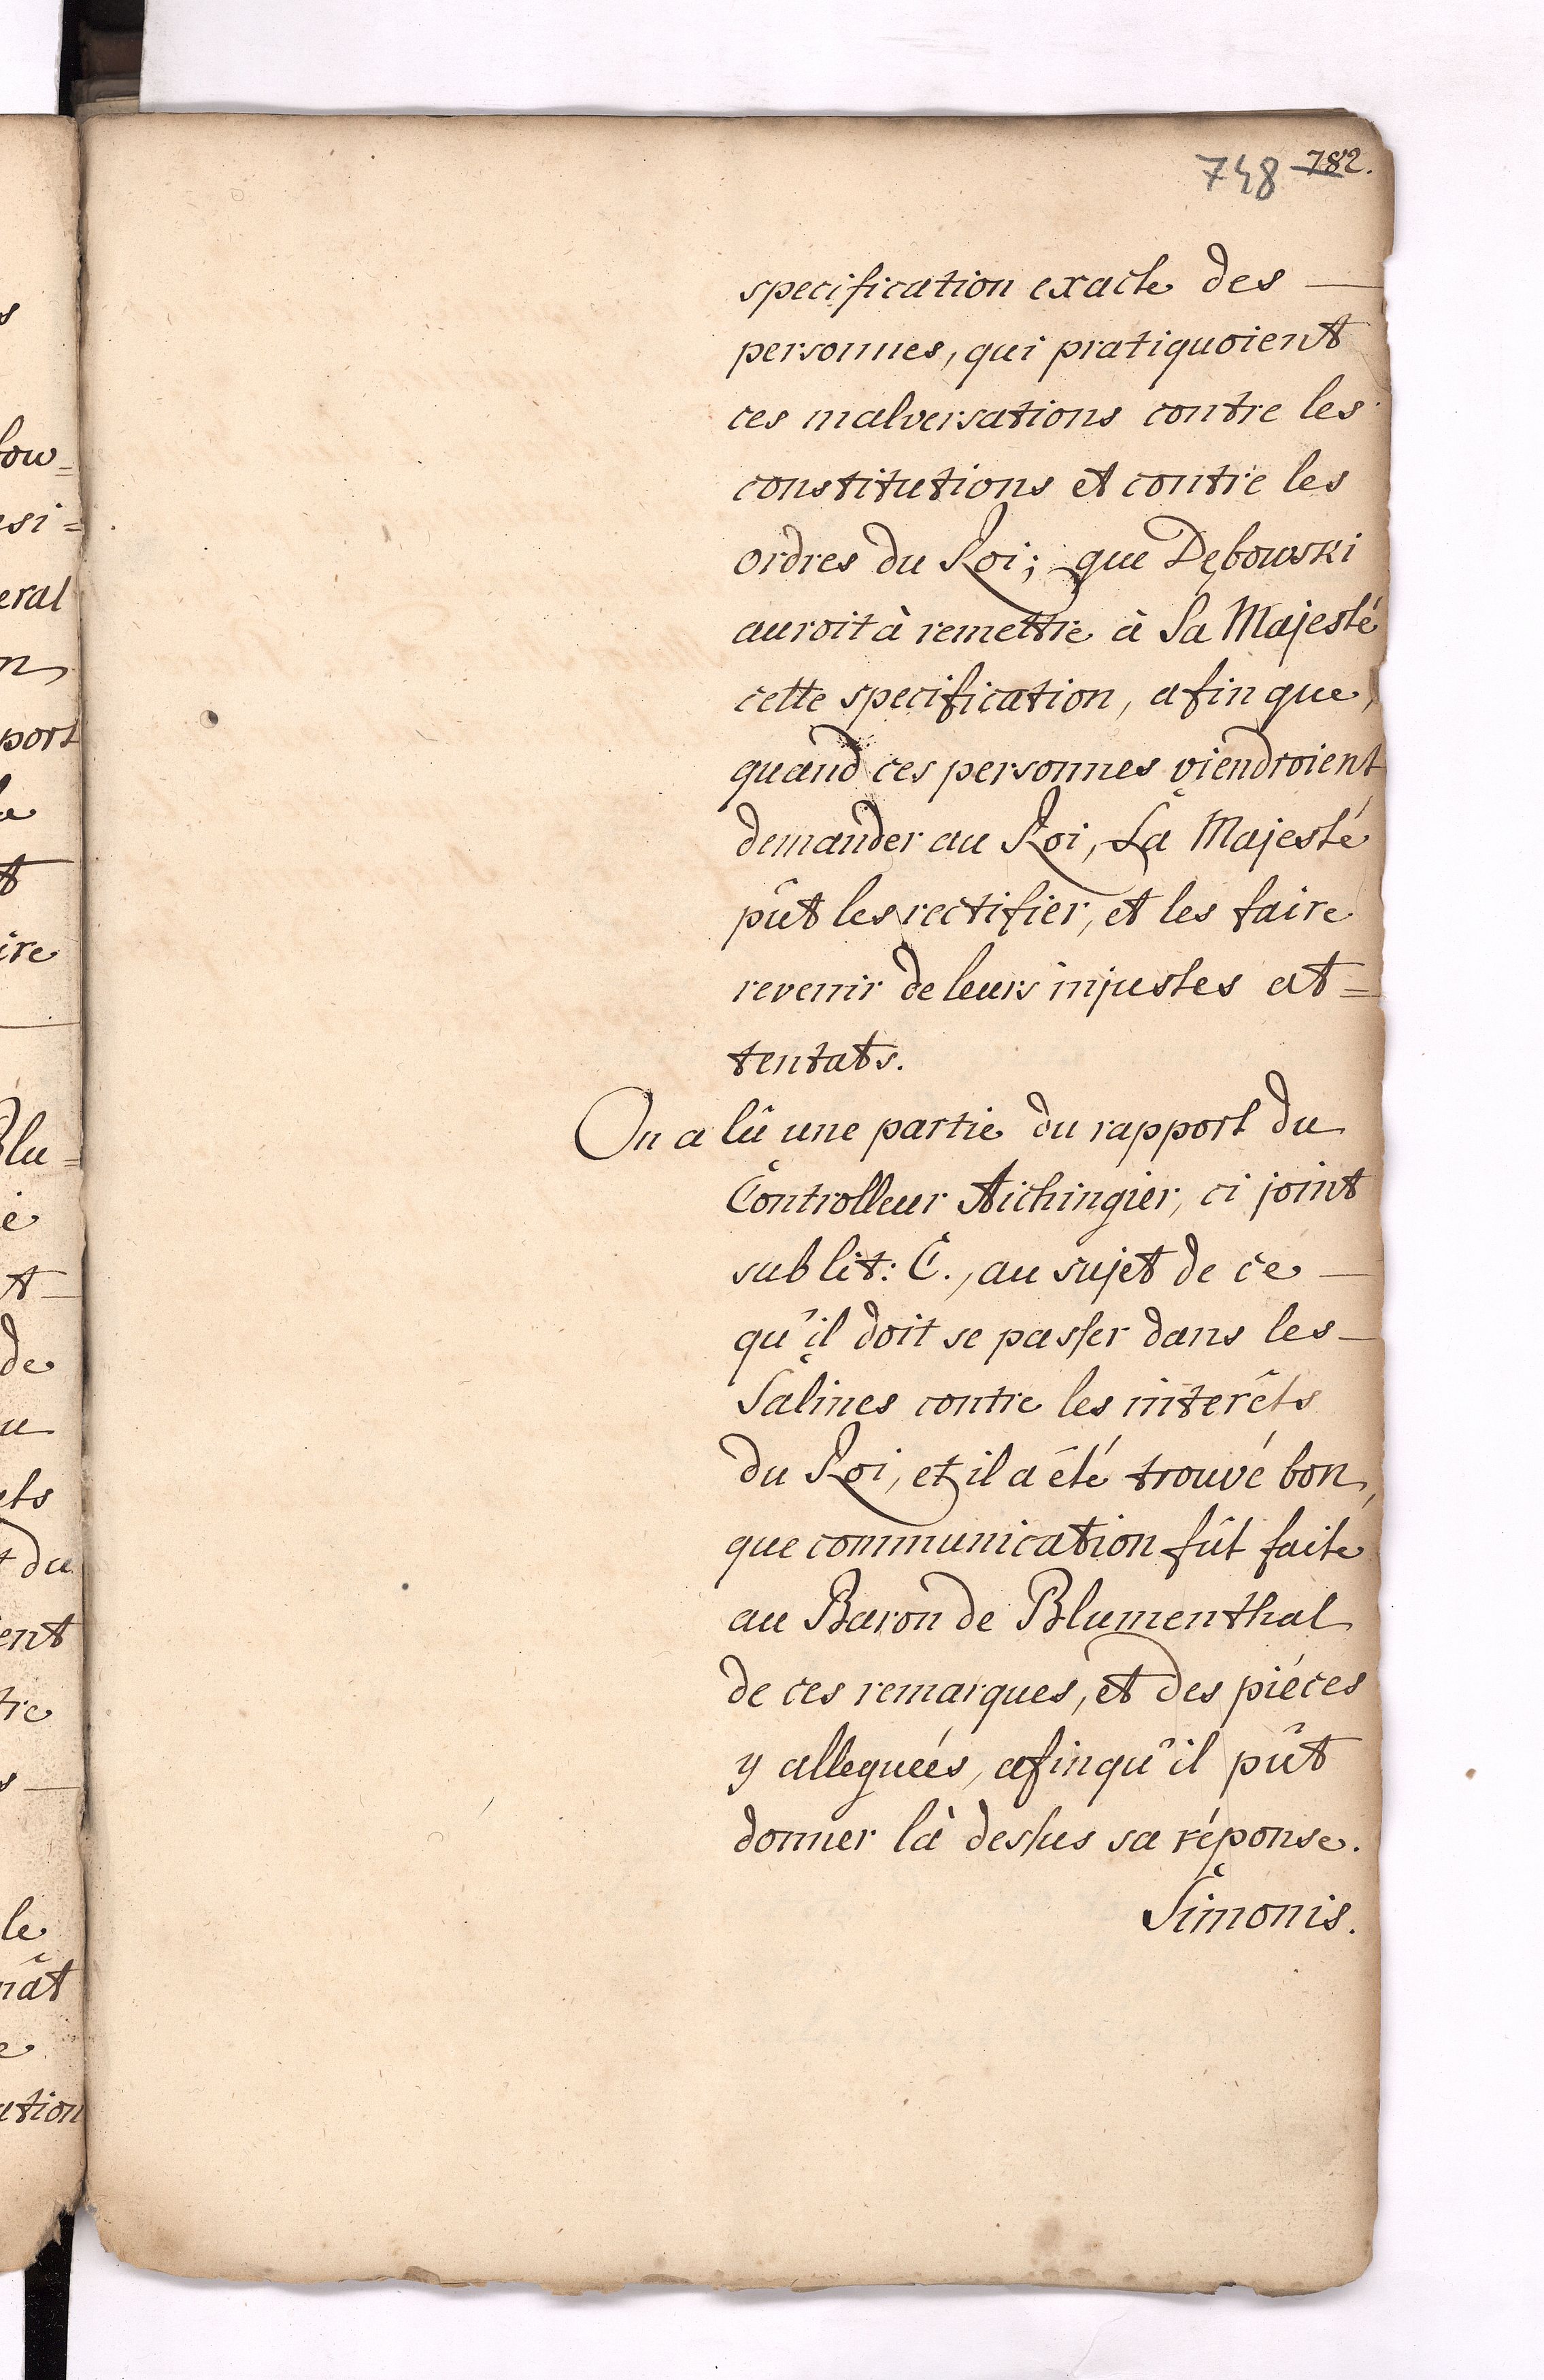 748 782.
specification exacte des —
personnes, qui pratiquoient
ces malversations contre les
constitutions et contre les
ordres du Roi; que Dębowski
auroit à remettre à Sa Majesté
cette specification, afin que,
quand ces personnes viendroient
demander au Roi, Sa Majesté
pût les rectifier, et les faire
revenir de leurs injustes at=
tentats.
On a lû une partie du rapport du
Controlleur Aichingier, ci joint
sub lit: C., au sujet de ce —
qu'il doit se passer dans les —
Salines contre les interêts
du Roi, et il a été trouvé bon,
que communication fût faite
au Baron de Blumenthal
de ces remarques, et des piéces
y alleguées, afin qu'il pût
donner là dessus sa réponse.
Simonis.